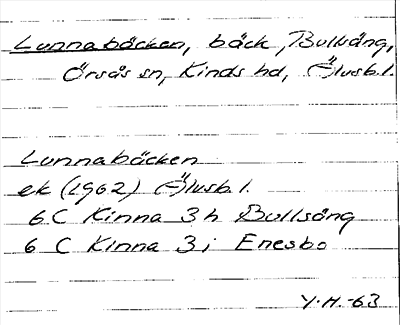 Lunnabäcken, bäck, Bullsäng,
Örsås sn, Kinds hd, Älvsb.l.
Lunnabäcken
ek (1962) Älvsb.l.
6 C Kinna 3 h Bullsäng
6 C Kinna 3 i Enesbo
Y.H.-63